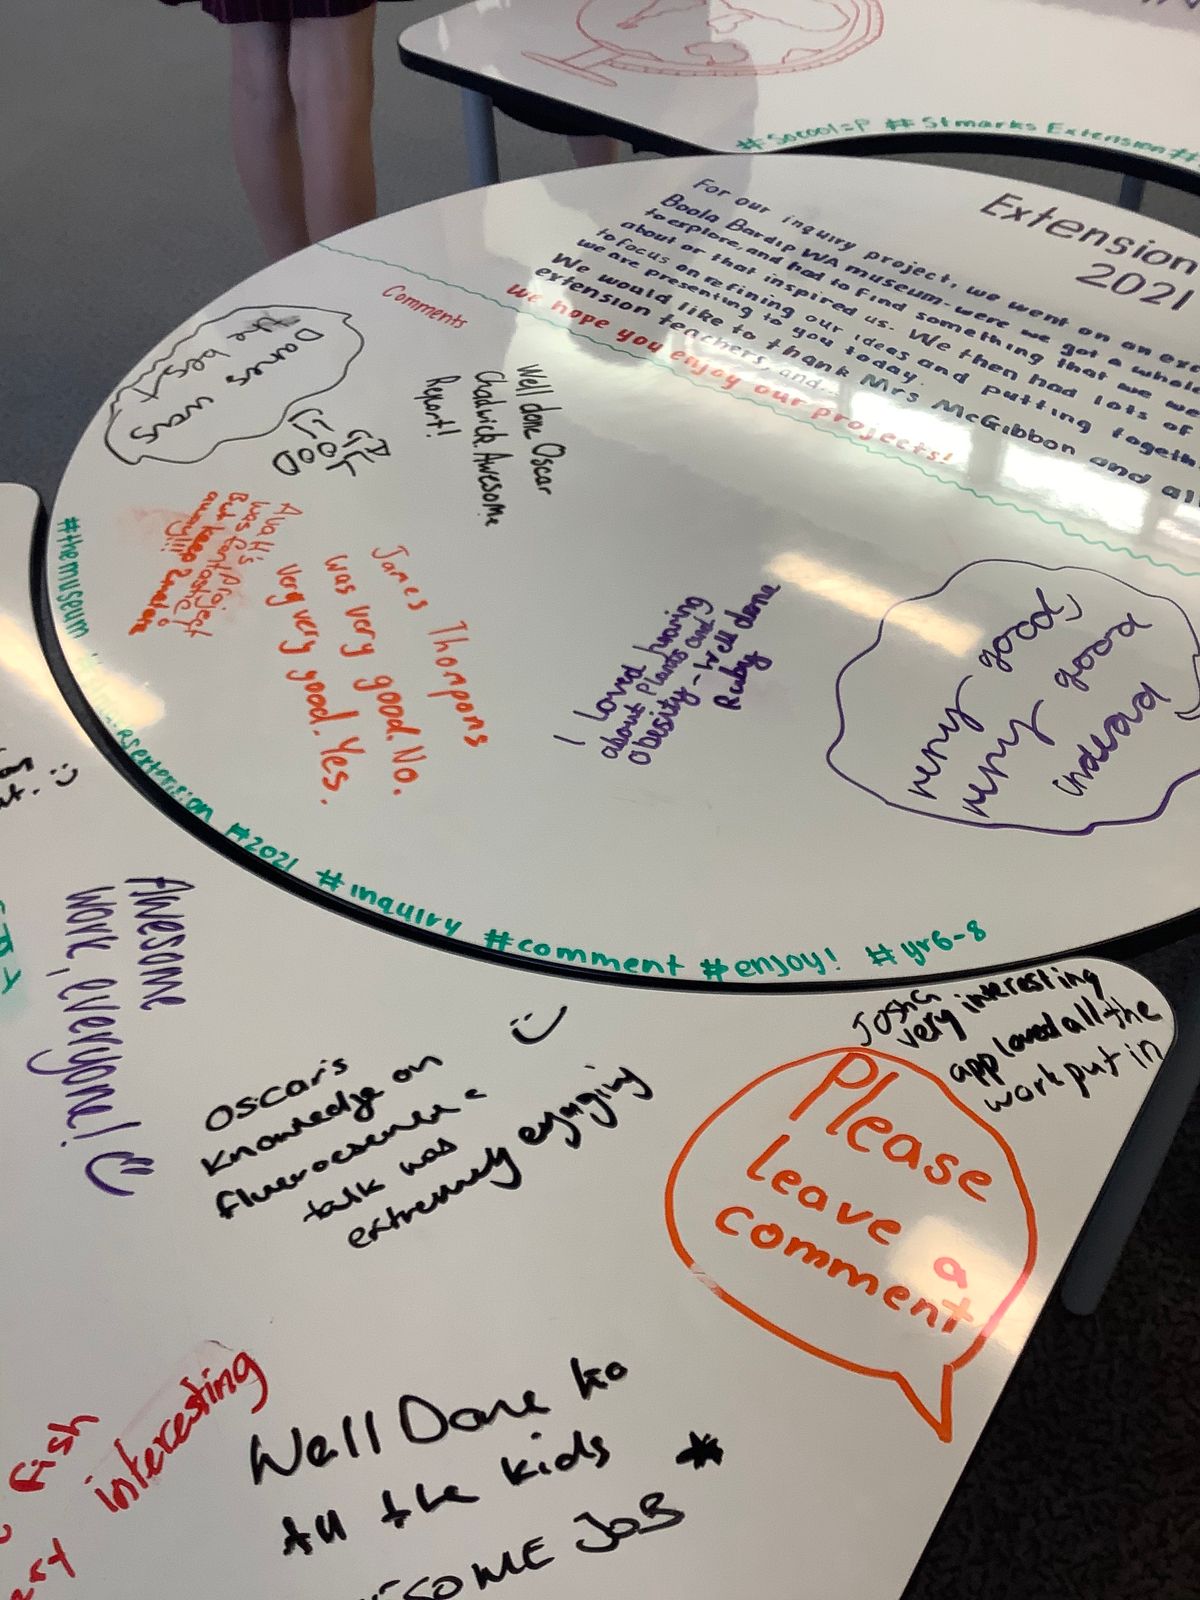 #Socool=P #Stmarks Extension
Extension
2021
For our inquiry project, we went on an
Boola Bardip WA museum- were we got a whole
to explore, and had to find something that we
about or that inspired us. We then had lots of
to focus on refining our ideas and putting
we are presenting to you today.
We would like to thank Mrs McGibbon and
extension teachers, and
We hope you enjoy our projects!
Comments
was
the best
GOOD
Well done Oscar
Chadwick. Awesome
Report!
Ava H's Project
was fantastic!
But keep
away!!!
James Thompons
was very good. No.
very very good. Yes.
I Loved hearing
about Plants and
obesity - Well done
Ruby
very good,
very good
indeed
#themuseum
#2021 #inquiry #comment #enjoy! #yr6-8
Awesome
work, everyone!
Oscar's
knowledge on
talk was
extremely engaging
very interesting
app loved all the
work put in
Please
leave a
comment
fish
interesting
Well Done to
all the kids
JOB